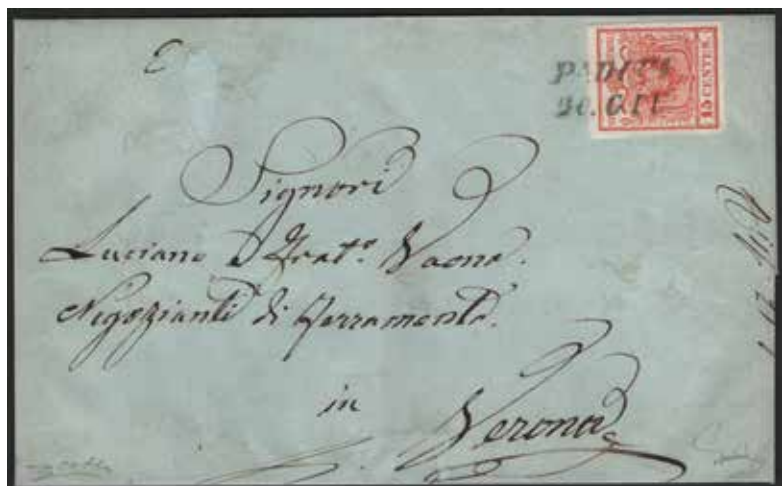 PADOVA
15 CENTES.
Signori
Luciano e Frat.º Vaona.
Negozianti di Ferramenta.
in
Verona